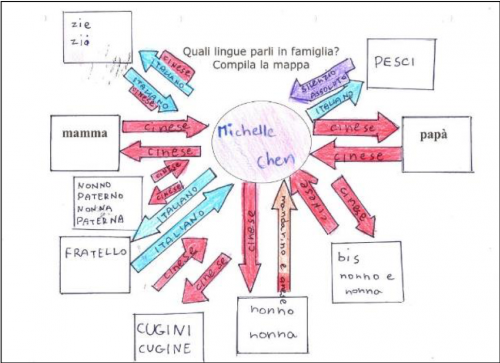 zie
zio
Quali lingue parli in famiglia?
Compila la mappa
PESCI
CINESE
ITALIANO
ITALIANO
CINESE
SILENZIO
ASSOLUTO
ITALIANO
Michelle
Chen
mamma
cinese
cinese
cinese
cinese
papà
NONNO
PATERNO
NONNA
PATERNA
cinese
cinese
FRATELLO
ITALIANO
ITALIANO
cinese
cinese
CUGINI
CUGINE
cinese
mandarino e
nonno
nonna
cinese
cinese
bis
nonno e
nonna